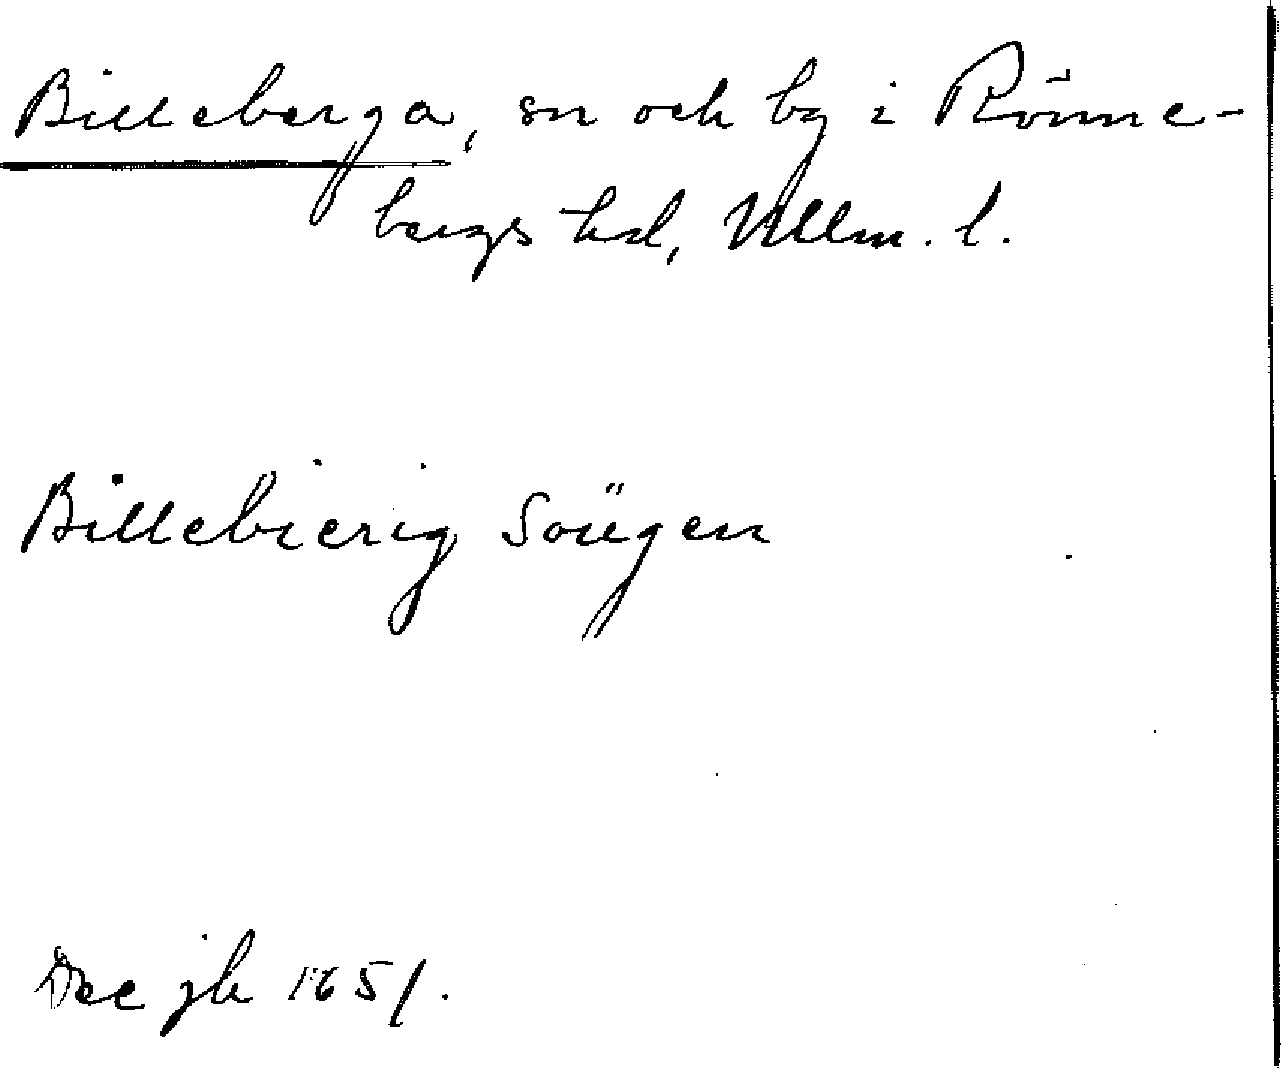 Billeberga, sn och by i Rönne-
bergs hd, Mllm. l.
Billebierig Soügen
Dec jb 1651.